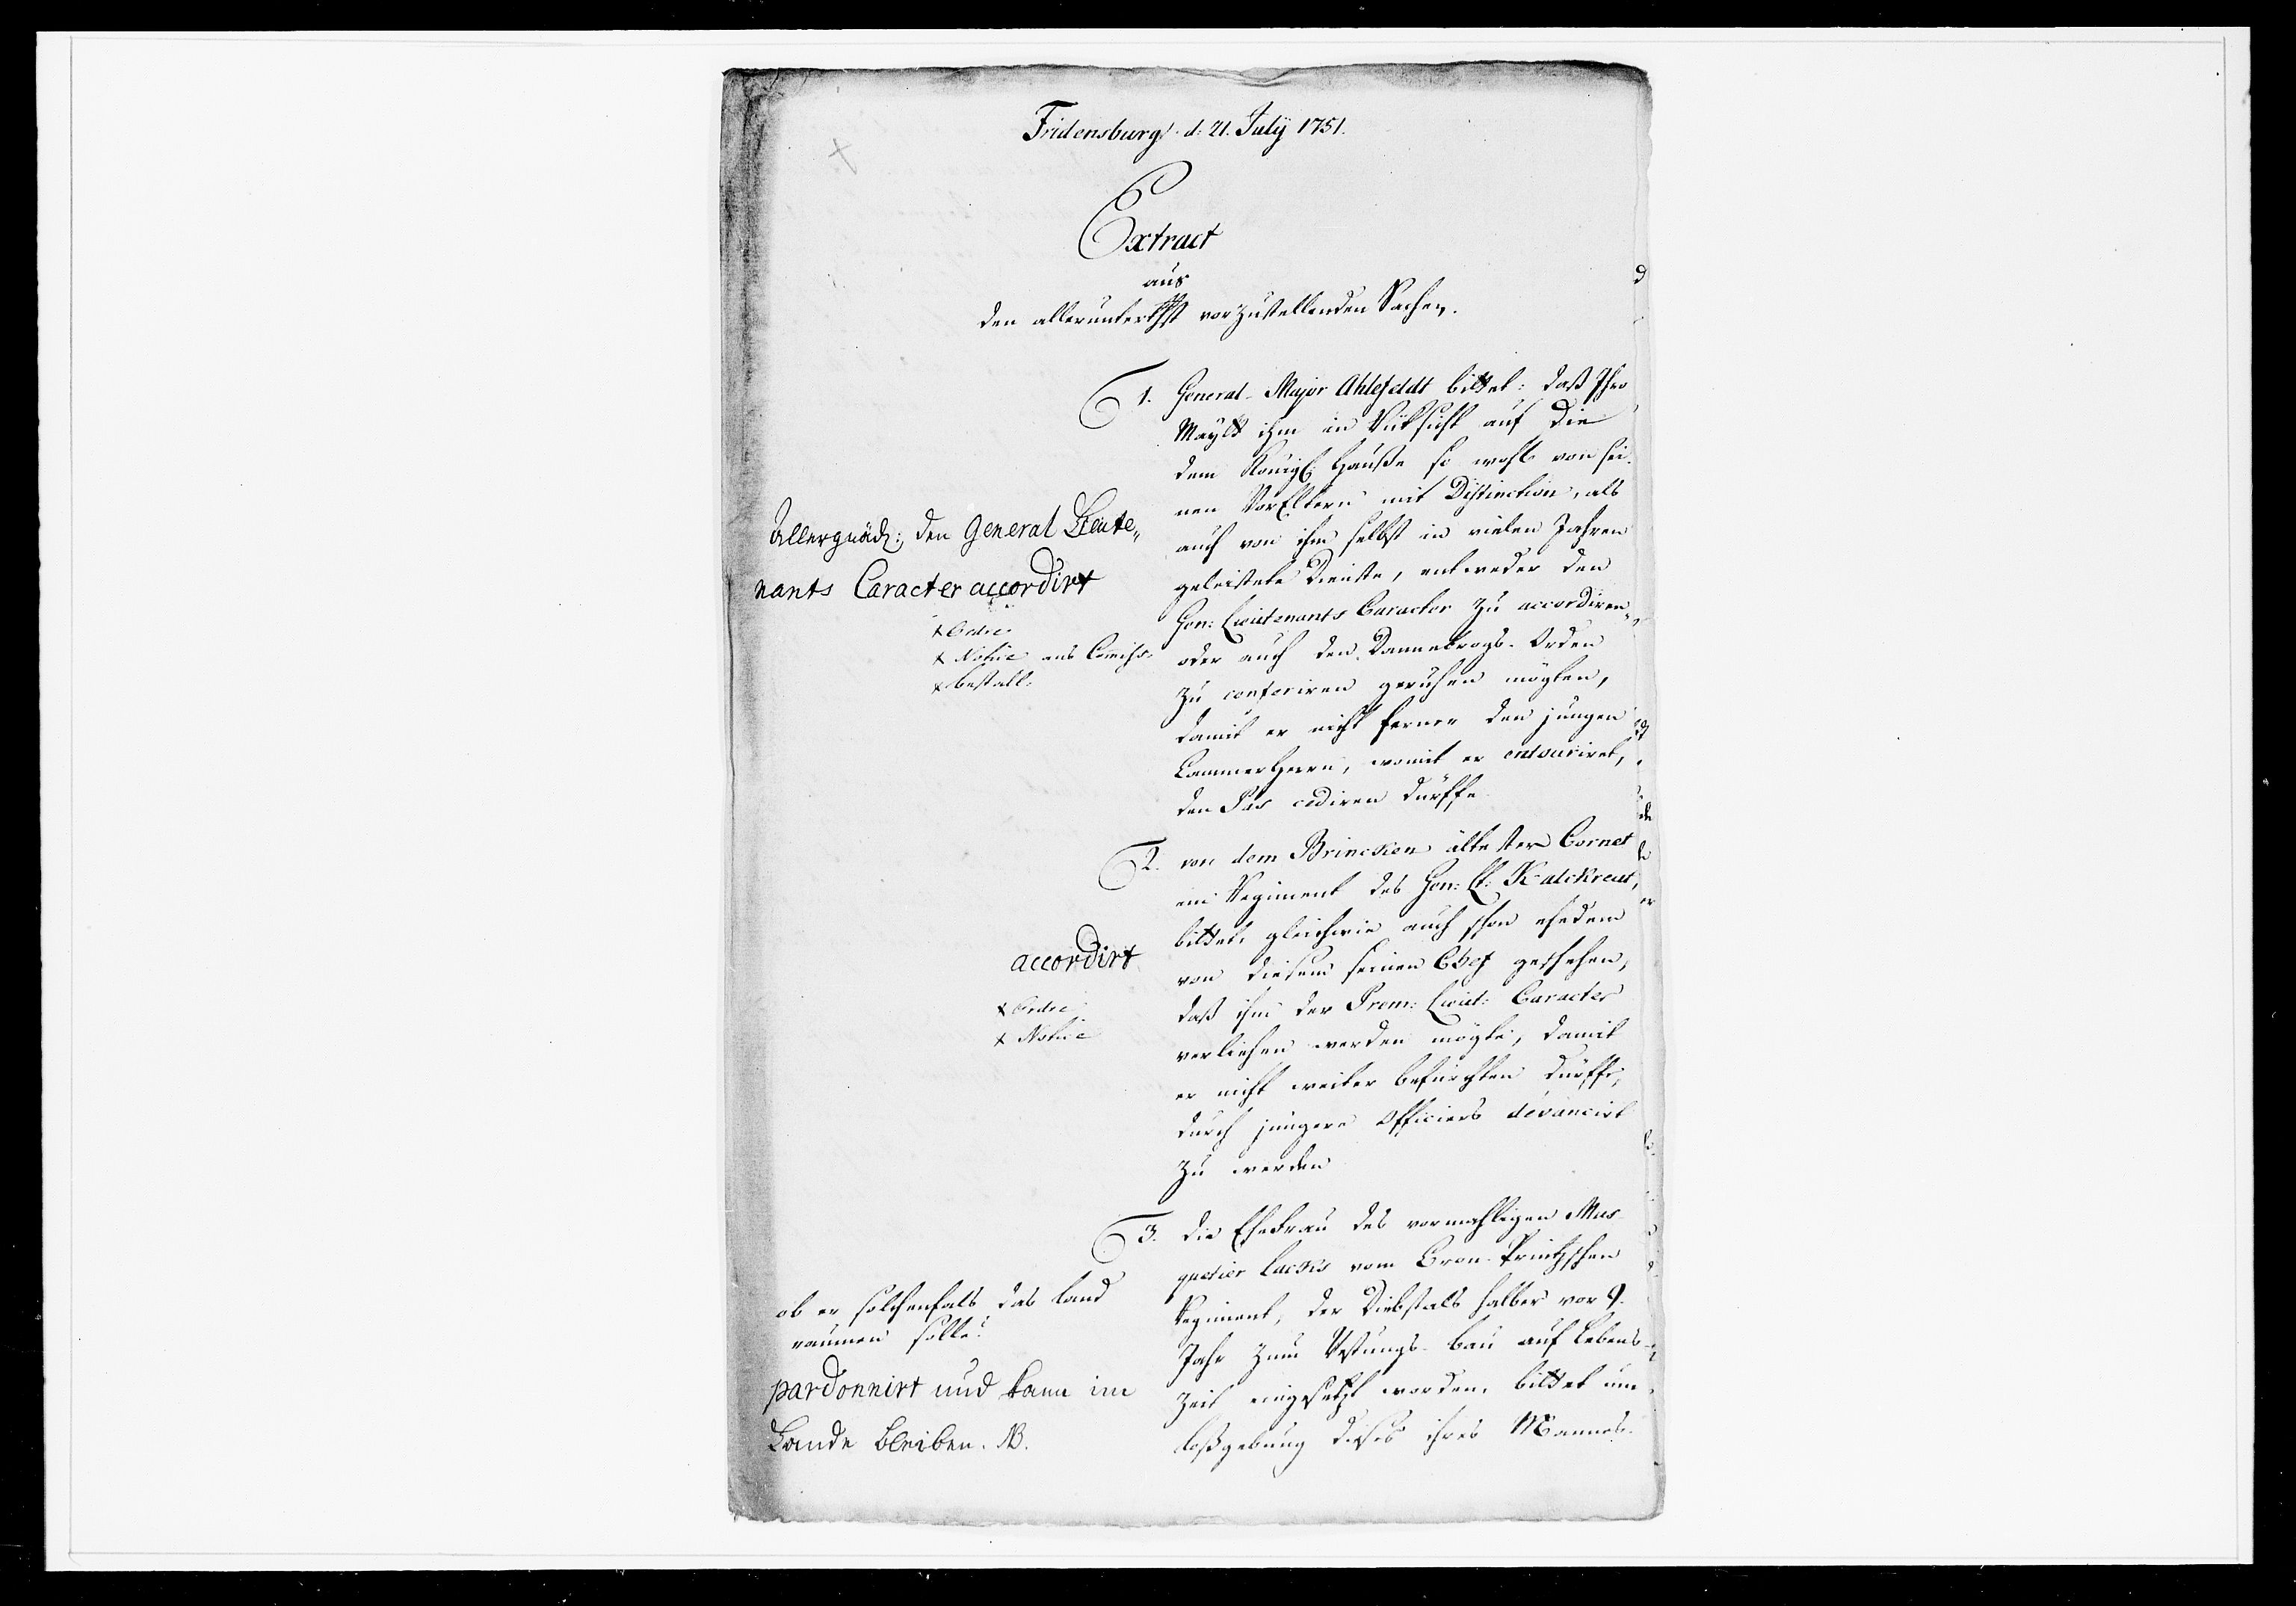 Fridensburg d: 21. July 1751.
Extract
aus
den allerunterthst vorzustellenden Sachen.
1. General-Major Ahlefeldt bittet: daß Ihro
Maytt ihm in Rüksicht auf die
dem Königl: Hauße so wohl von sei-
nen VorEltern mit Distinction, als
auch von ihm selbst in vielen Jahren
geleistete Dienste, entweder den
Gen: Lieutenants Caracter zu accordiren,
oder auch den Dannebrogs-Orden
zu conferiren geruhen mögten,
damit er nicht ferner den jungen
CammerHerrn, womit er entouriret,
den Pas cediren dürffe.
Allergnäd: den General Lieute„
nants Caracter accordirt
x Ordre
x Notice ans Commiss.
x bestall.
2. von dem Brincken ältester Cornet
im Regiment des Gen: Lt: Kalckreut,
bittet, gleichwie auch schon ehedem
von diesem seinen Chef geschehen,
daß ihm der Prem: Lieut: Caracter
verliehen werden mögte, damit
er nicht weiter befürchten dürffe,
durch jüngere Officiers dévancirt
zu werden
accordirt
x Ordre
x Notice
3. die Ehefrau des vormahligen Mus-
quetier Lackis vom Cron-Printzschen
Regiment, der Diebstals halber vor 9.
Jahr zum Vestungs-bau auf Lebens-
Zeit eingesetzt worden, bittet um
loßgebung dieses ihres Mannes.
ob er solchenfals das Land
räumen solle?
pardonnirt und kann im
Lande bleiben. NB.